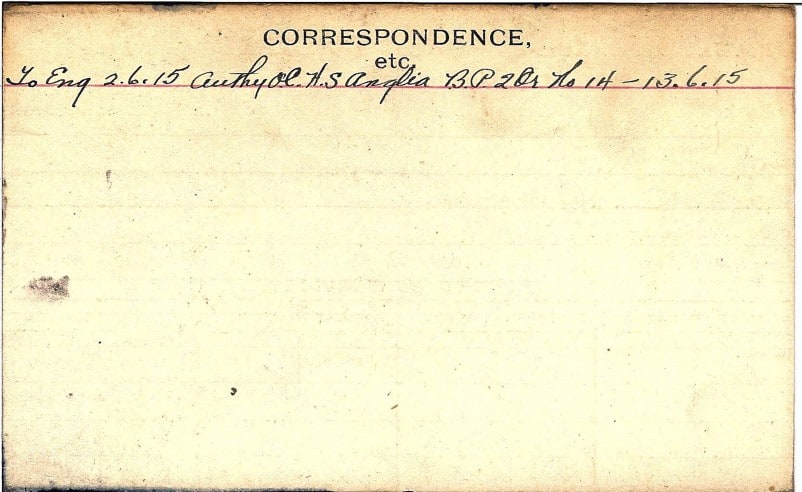 CORRESPONDENCE,
etc.
To Eng 2.6.15 Authy O.C. H.S Anglia B.P. 2 Or No 14 - 13.6.15